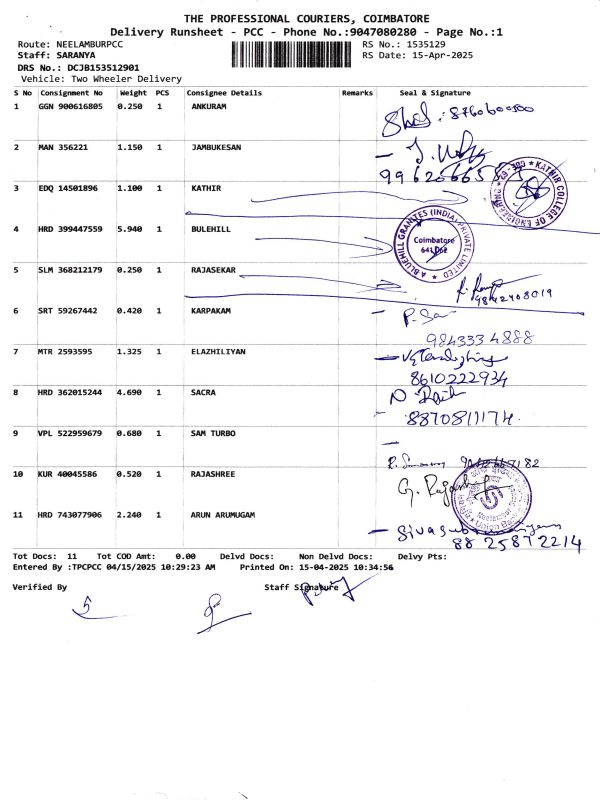 THE PROFESSIONAL COURIERS, COIMBATORE
Delivery Runsheet - PCC - Phone No.:9047080280 - Page No.:1
Route: NEELAMBURPCC RS No.: 1535129
Staff: SARANYA RS Date: 15-Apr-2025
DRS No.: DCJB153512901
Vehicle: Two Wheeler Delivery
S No Consignment No Weight PCS Consignee Details Remarks Seal & Signature
1 GGN 900616805 0.250 1 ANKURAM
8760600500
2 MAN 356221 1.150 1 JAMBUKESAN
3 EDQ 14501896 1.100 1 KATHIR
KATHIR COLLEGE OF ENGINEERING
4 HRD 399447559 5.940 1 BULEHILL
BLUEHILL GRANITES (INDIA) PRIVATE LIMITED
Coimbatore
641 062
5 SLM 368212179 0.250 1 RAJASEKAR
6 SRT 59267442 0.420 1 KARPAKAM
9843334888
7 MTR 2593595 1.325 1 ELAZHILIYAN
8610222934
8 HRD 362015244 4.690 1 SACRA
8870811174
9 VPL 522959679 0.680 1 SAM TURBO
10 KUR 40045586 0.520 1 RAJASHREE
11 HRD 743077906 2.240 1 ARUN ARUMUGAM
88 25872214
Tot Docs: 11 Tot COD Amt: 0.00 Delvd Docs: Non Delvd Docs: Delvy Pts:
Entered By :TPCPCC 04/15/2025 10:29:23 AM Printed On: 15-04-2025 10:34:56
Verified By Staff Signature